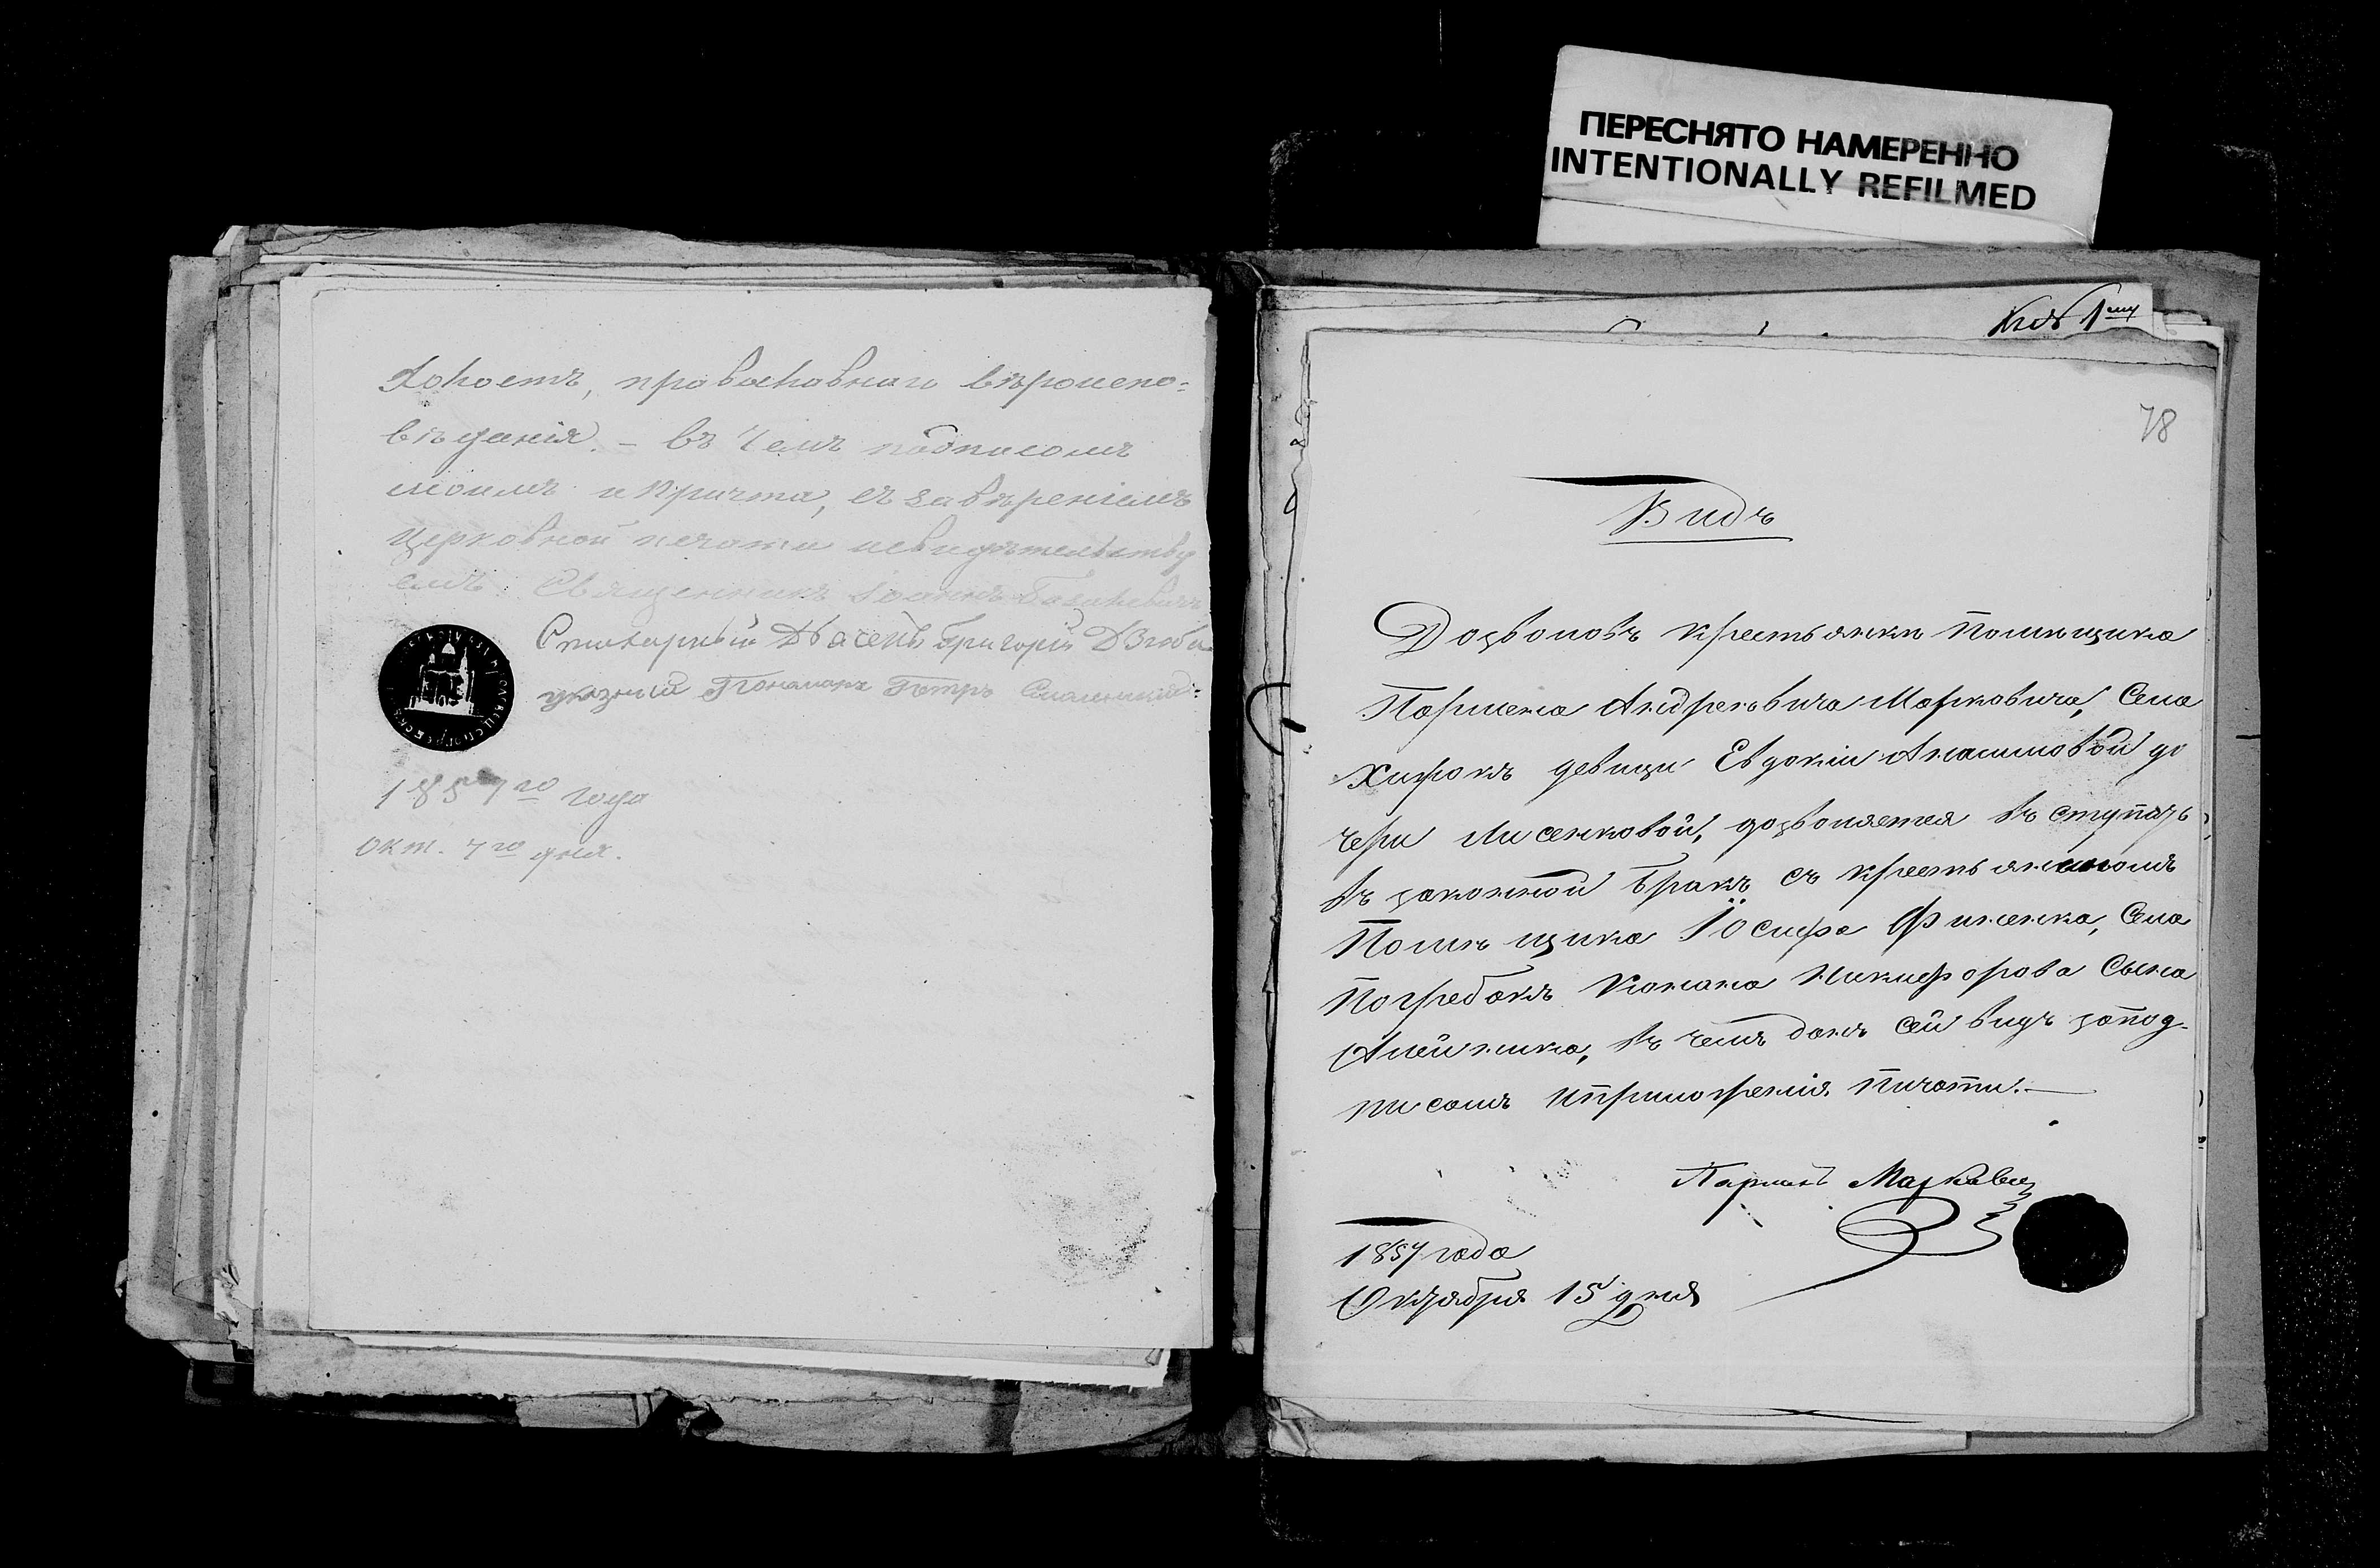 ПЕРЕСНЯТО НАМЕРЕННО
INTENTIONALLY REFILMED
православнаго вѣроиспо=
вѣданія. – въ чемъ подписомъ
моимъ и причта, съ завѣреніемъ
церковной печати свидѣтельству
емъ. Священникъ Іоаннъ
Григорій
указный Пономарь Петръ
1857го года
окт. 7го дня.
78
Видъ
Дозволовъ крестьянки Помѣщика
Пармена Андреевича Марковича, Села
девици Евдокіи до
чери Лисенковой, дозволяется въ ступать
въ законной бракъ съ крестьяниномъ
Помѣщика Іосифа Финенка, Села
Погребокъ Никифорова Сына
Алейника, въ чемъ данъ сей видъ запод-
писомъ иприложенія Пичати. —
Парменъ Маркович
1857 года
Октября 15 дня